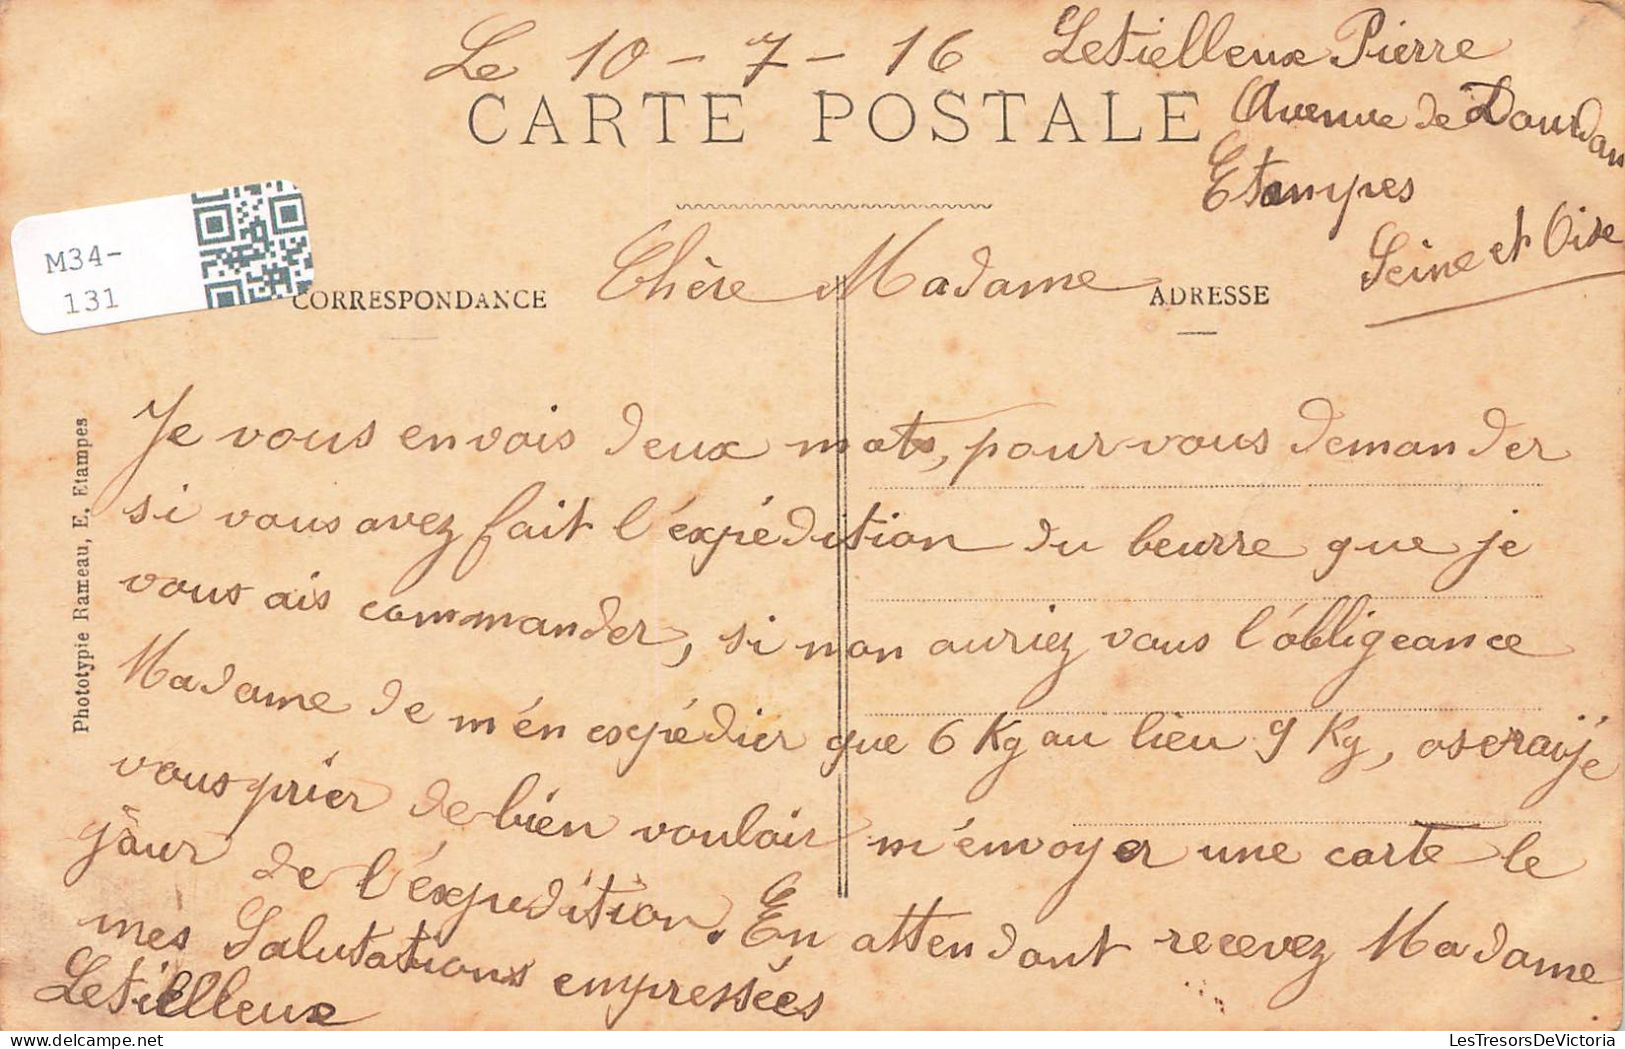 Le 10 - 7 - 16 Letielleux Pierre
CARTE POSTALE
Avenue de Dourdan
Etampes
Seine et Oise
M34-
131
CORRESPONDANCE
Chère Madame
ADRESSE
Je vous envois deux mots, pour vous demander
si vous avez fait l'éxpédition du beurre que je
vous ais commander, si non auriez vous l'óbligeance
Madame de m'én expédier que 6 Kg au lieu 9 Kg, oseraije
vous prier de bien vouloir m'envoyer une carte le
jour de l'éxpedition. En attendant recevez Madame
mes Salutations empressées
Letielleux
Phototypie Rameau, E. Etampes
LesTresorsDeVictoria.com